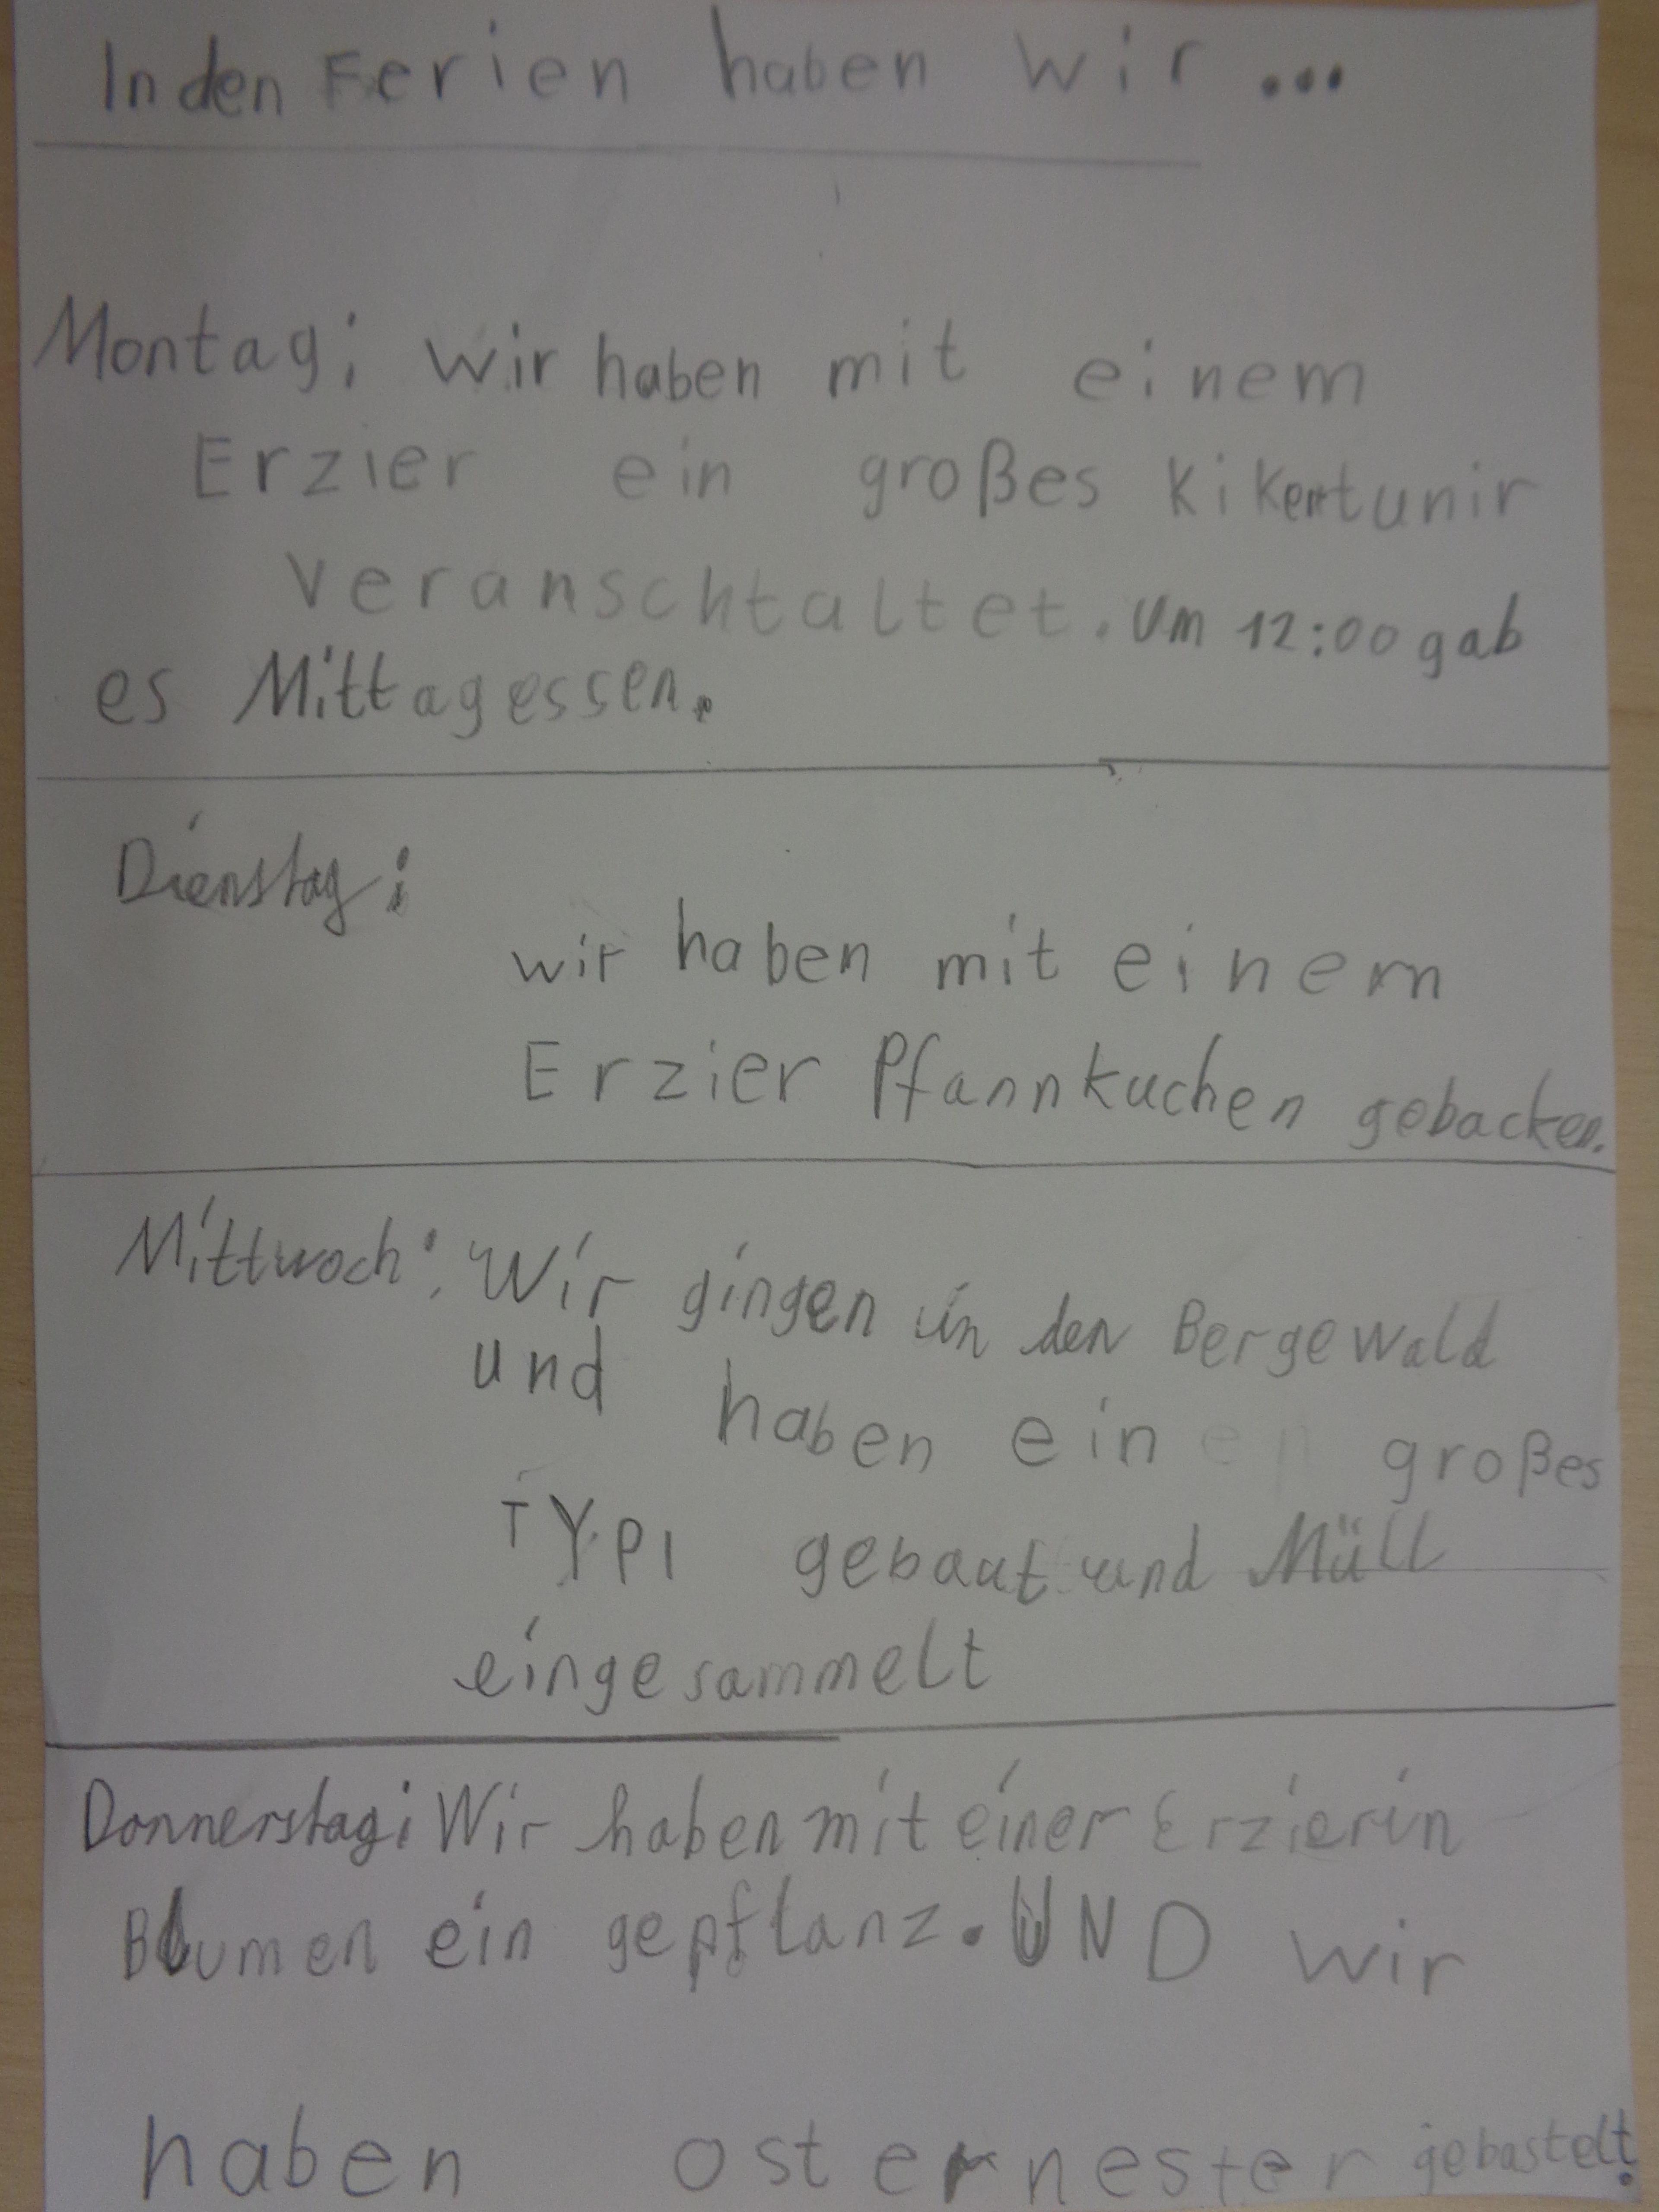 In den Ferien haben wir ...
Montag: wir haben mit einem
Erzier ein großes Kikertunir
veranschtaltet. Um 12:00 gab
es Mittagessen.
Dienstag:
wir haben mit einem
Erzier Pfannkuchen gebacken.
Mittwoch: Wir gingen in den Bergewald
und haben ein großes
TYPI gebaut und Müll
eingesammelt
Donnerstag: Wir haben mit einer Erzierin
Blumen ein gepflanz. UND wir
haben osternester gebastelt.